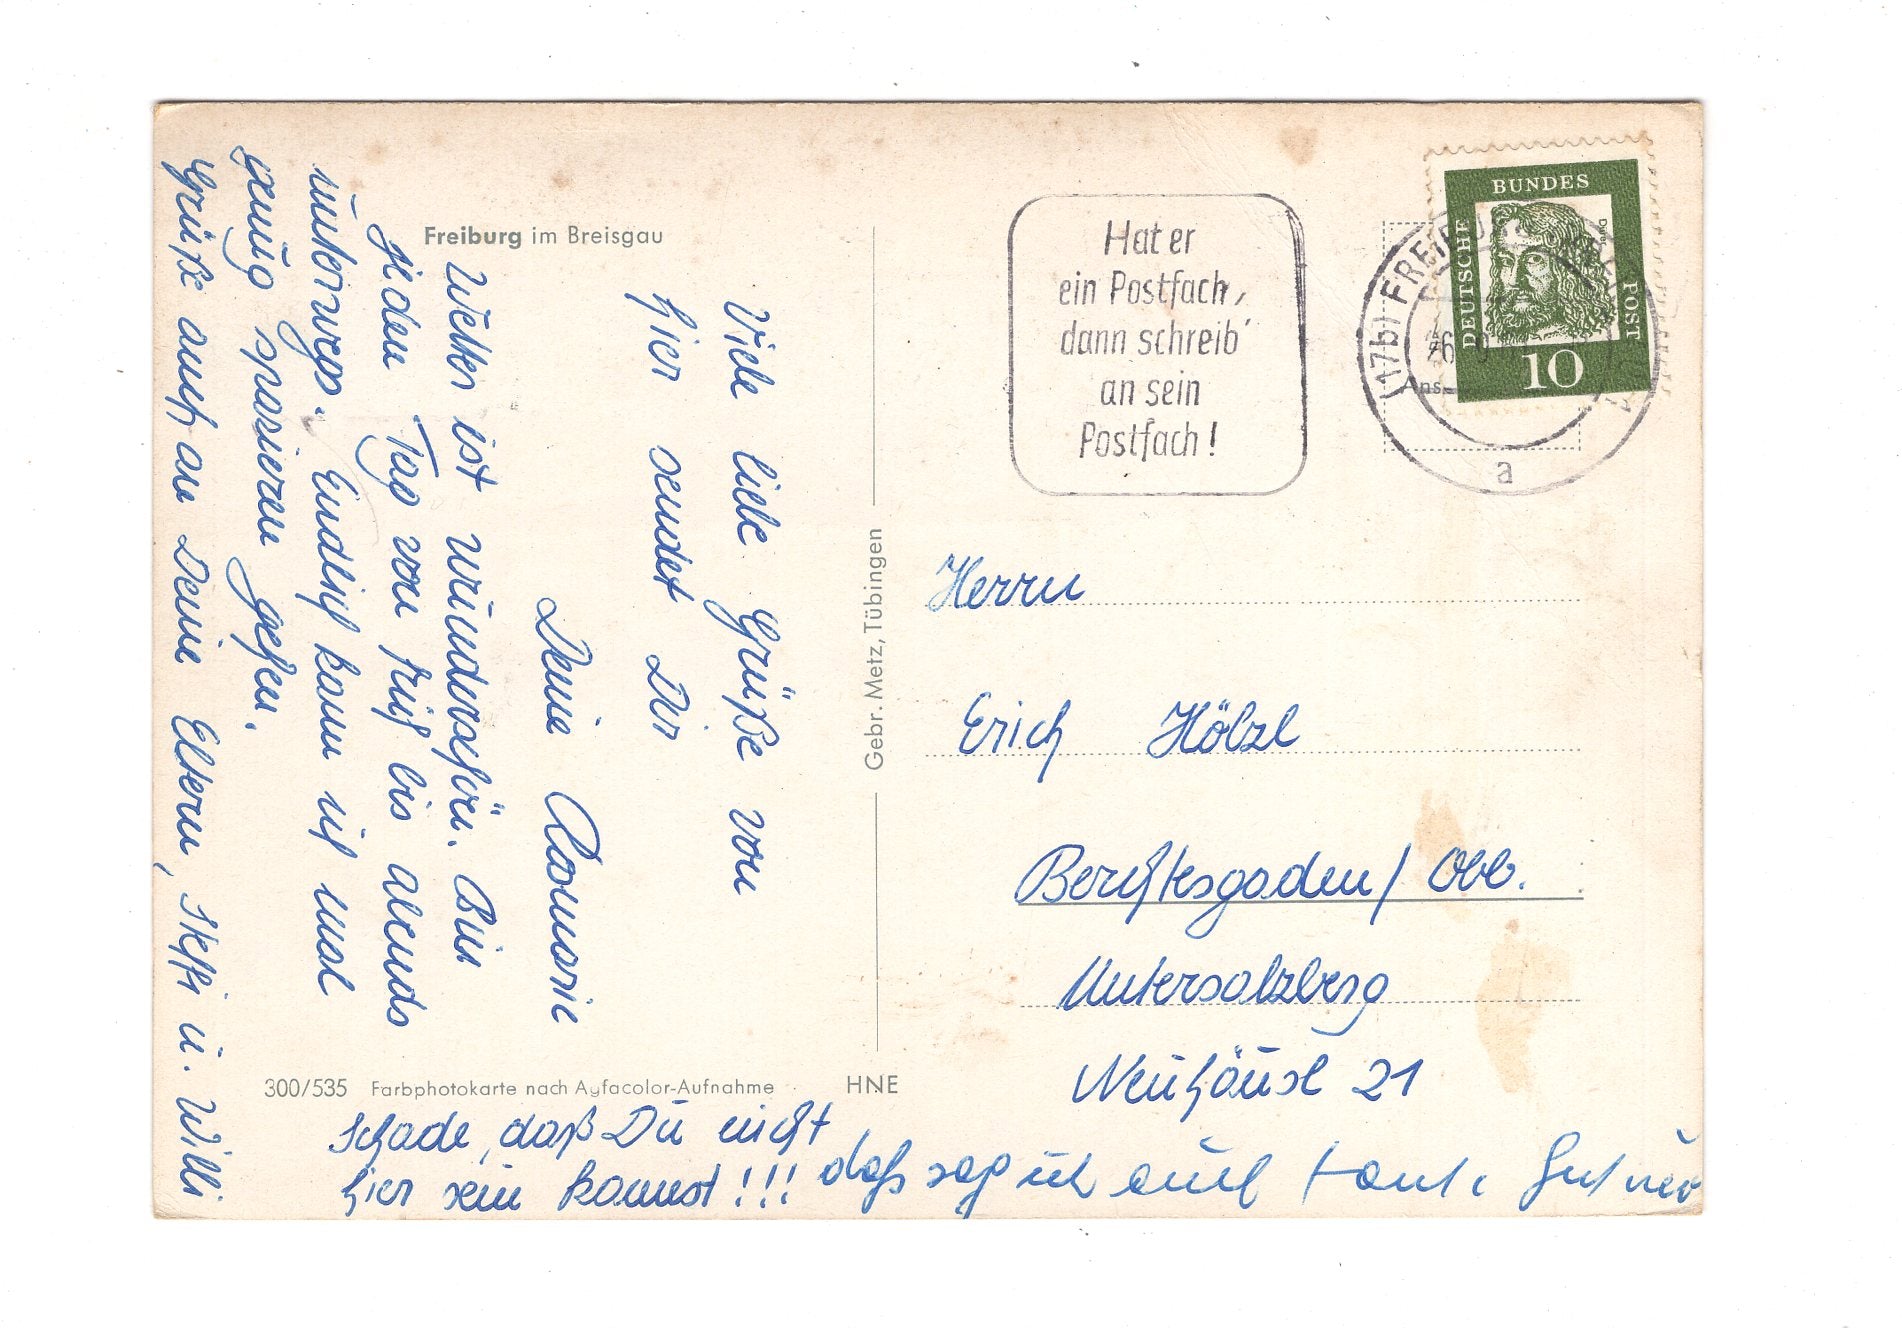 Freiburg im Breisgau
Viele liebe Grüße von
hier sendet Dir
Deine Rosmarie
Wetter ist wunderschön. Bin
jeden Tag von früh bis abends
unterwegs. Endlich kann ich mal
genug spazieren gehen.
Grüße auch an Deine Eltern, Steffi u. Willi
300/535 Farbphotokarte nach Agfacolor-Aufnahme HNE
Schade, daß Du nicht
hier sein kannst!!! daß sag ich auch Tante
Gebr. Metz, Tübingen
Hat er
ein Postfach,
dann schreib'
an sein
Postfach!
(17b) FREIBURG
a
DEUTSCHE BUNDES POST
10
Herrn
Erich Hölzl
Berchtesgaden/Obb.
Untersalzberg
Neuhäusl 21